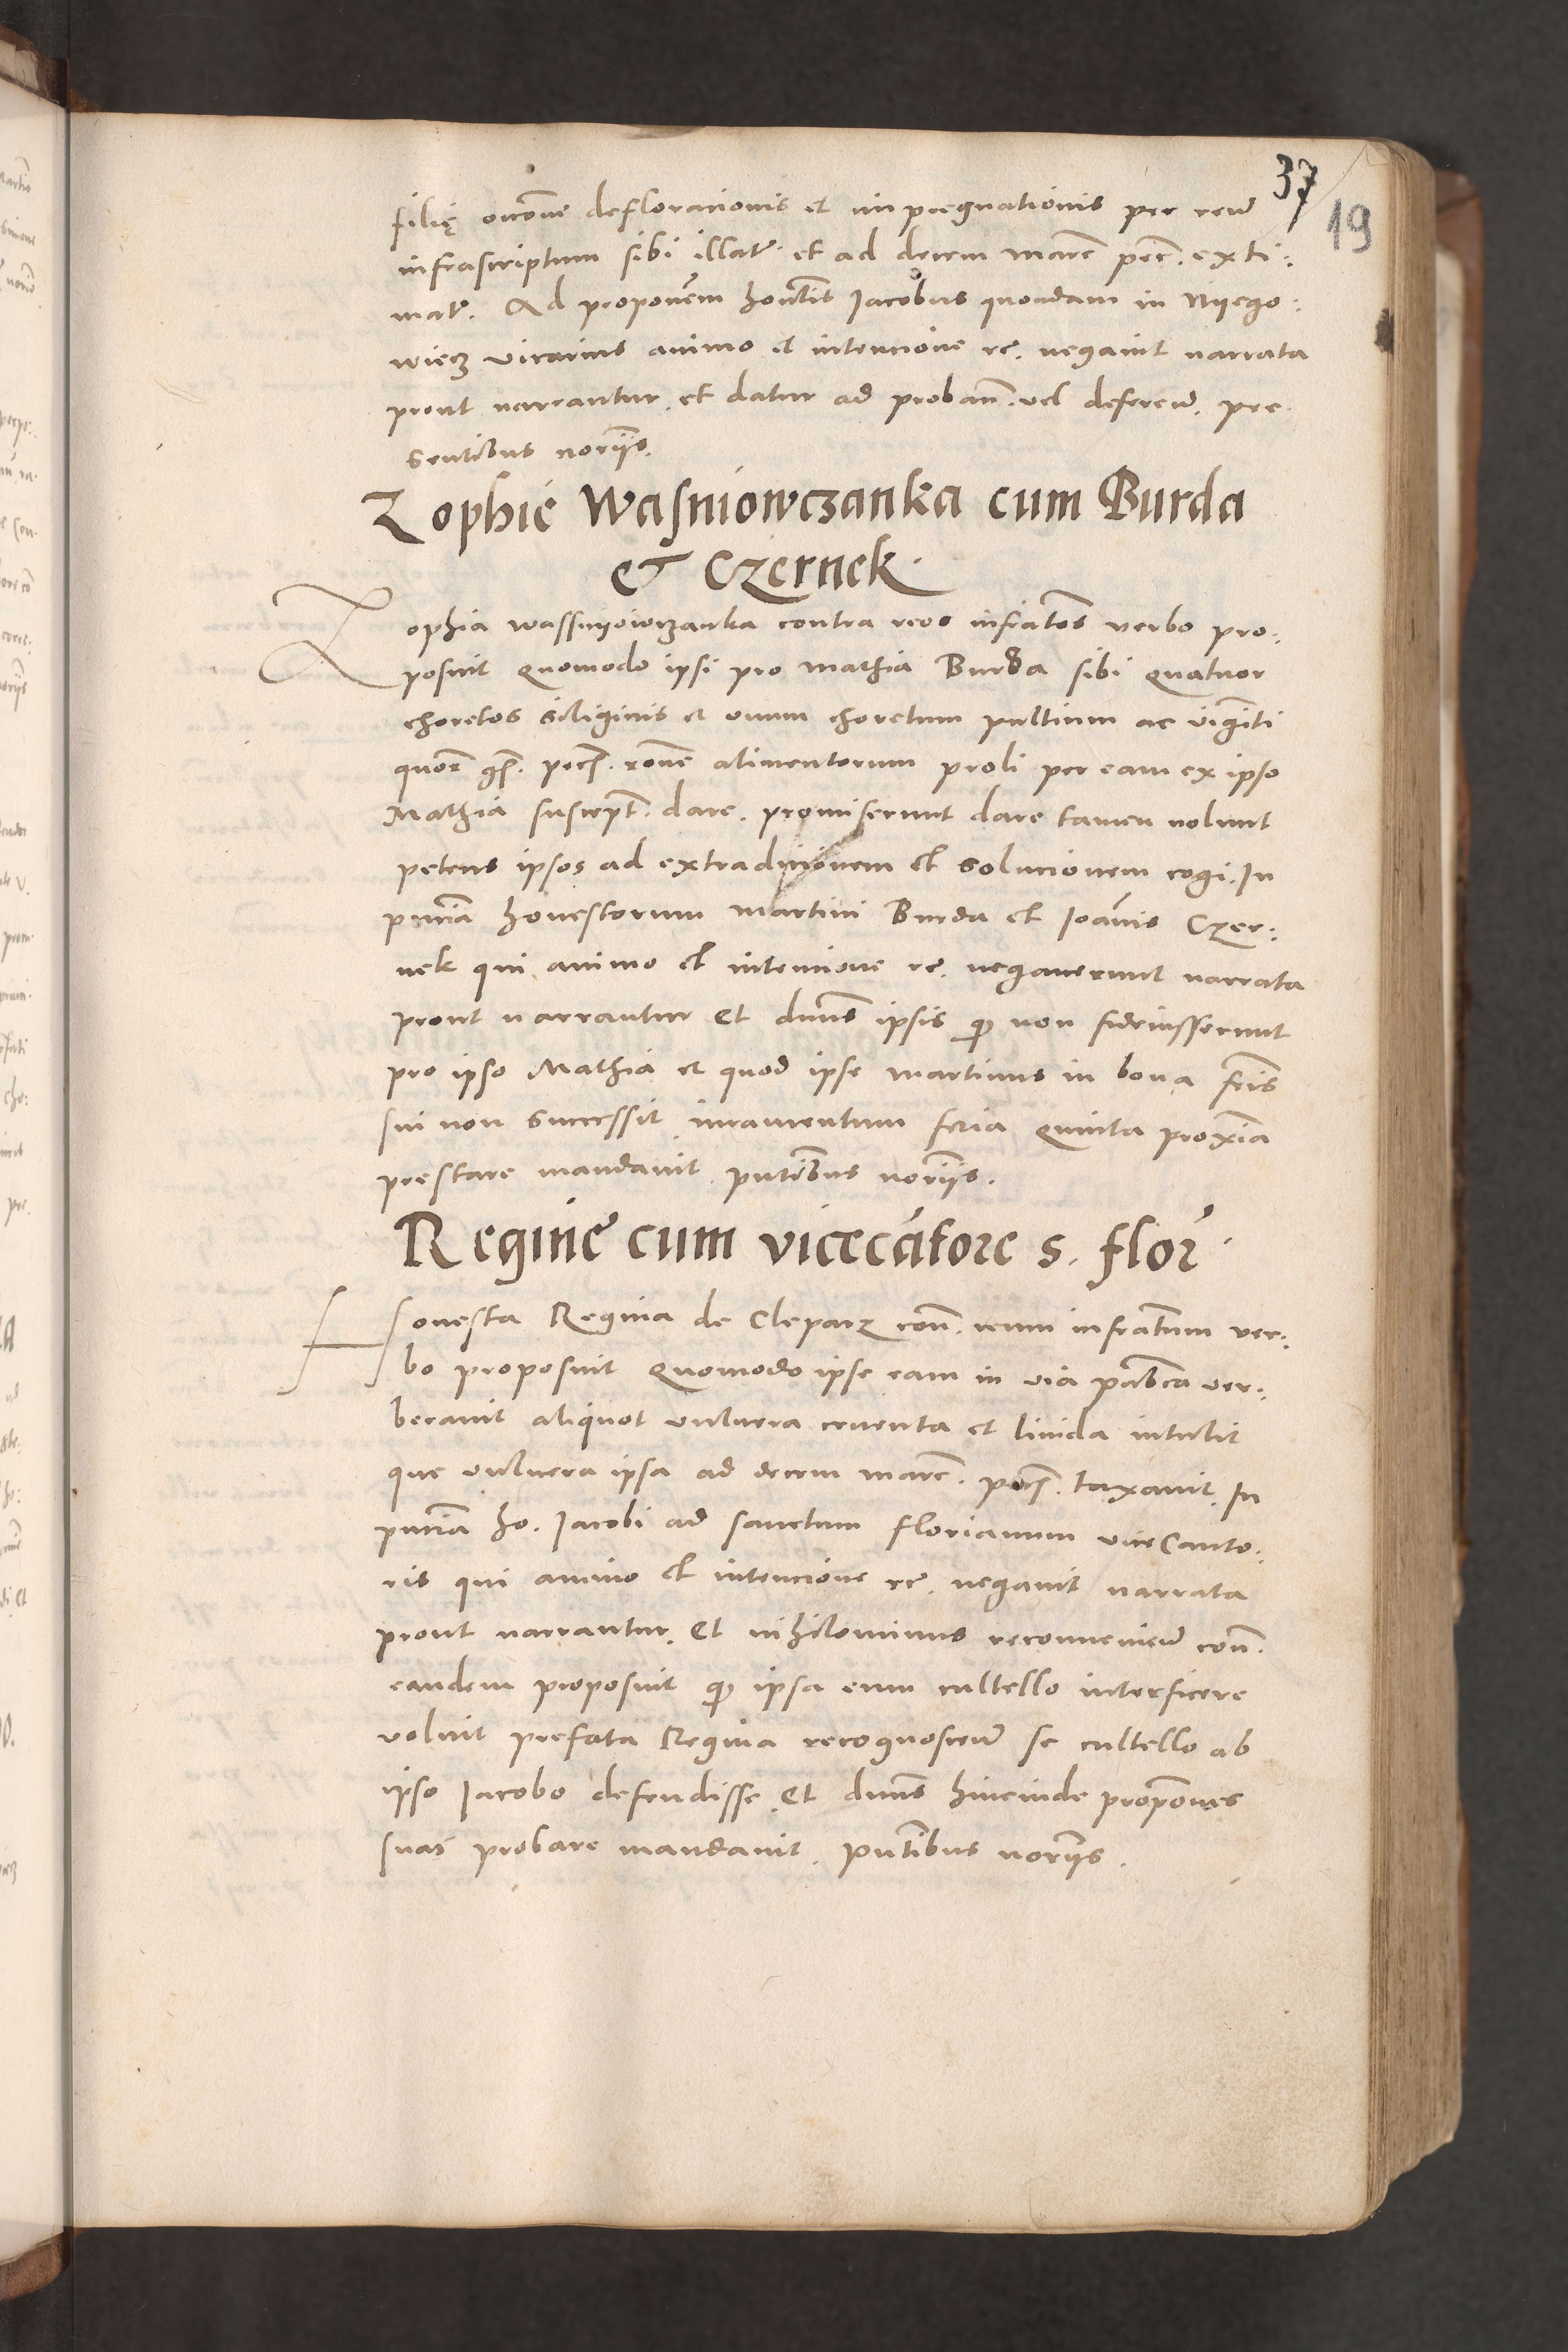 37
19
filię occōne defloracionis et impregnationis per reum̄
infrascriptum sibi illatꝫ. et ad decem marc̄ pec̄. exti:
matꝫ. Ad proponēm honl̄is Iacobus quondam in Nyego:
wiecz vicarius animo et intencione rē. negavit narrata
prout narrantur. et datur ad proban̄. vel deferen̄. pre
sentibus noriis.
Zophie Wasniowczanka cum Burda
et Czernek.
Zophia wassnyowczanka contra reos infrātos verbo pro:
posuit Quomodo ipsi pro mathia Burda sibi quatuor
choretos siliginis et unum choretum pultium ac vigīti
quor̄ gr̄. pecs̄. rōne alimentorum proli per eam ex ipso
Mathia suscept̄. dare. promiserunt dare tamen nolunt
petens ipsos ad extradicionem et solucionem cogi. In
pn̄ciā honestorum Martini Burda et Ioānis Czer:
nek qui animo et intencione rē. negaverunt narrata
prout narrantur Et dnūs ipsis qꝫ non fideiusserunt
pro ipso Mathia et quod ipse martinus in bona frīs
sui non successit iuramentum feria Quinta proxīa
prestare mandavit. pn̄tibus noriis.
Regine cum vicecātore s. flor̄.
Honesta Regina de Cleparz con̄. reum infrātum ver:
bo proposuit Quomodo ipse eam in via pub̄ca ver:
beravit aliquot vulnera cruenta et livida intulit
que vulnera ipsa ad decem marc̄. pecs̄. taxavit. In
pn̄ciā ho. Iacobi ad sanctum florianum vice Canto:
ris qui animo et intencione rē. negavit narrata
prout narrantur. Et nihilominus reconvenien̄ con̄.
eandem proposuit qꝫ ipsa eum cultello interficere
voluit prefata Regina recognoscen̄ se cultello ab
ipso Iacobo defendisse. Et dnūs hincinde propōnes
suas probare mandavit. pn̄tibus noriis.